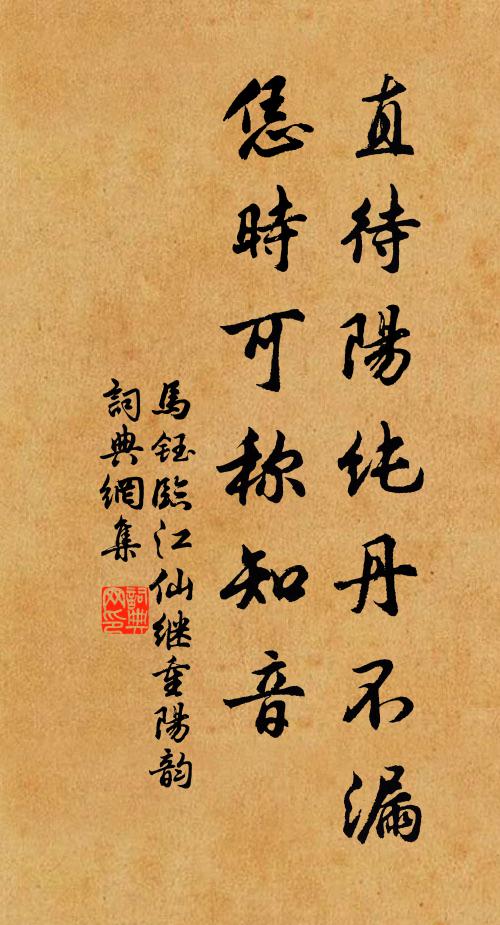 直待陽纯丹不漏
恁時可称知音
馬鈺臨江仙继重陽韵
詞典網集
詞典网印